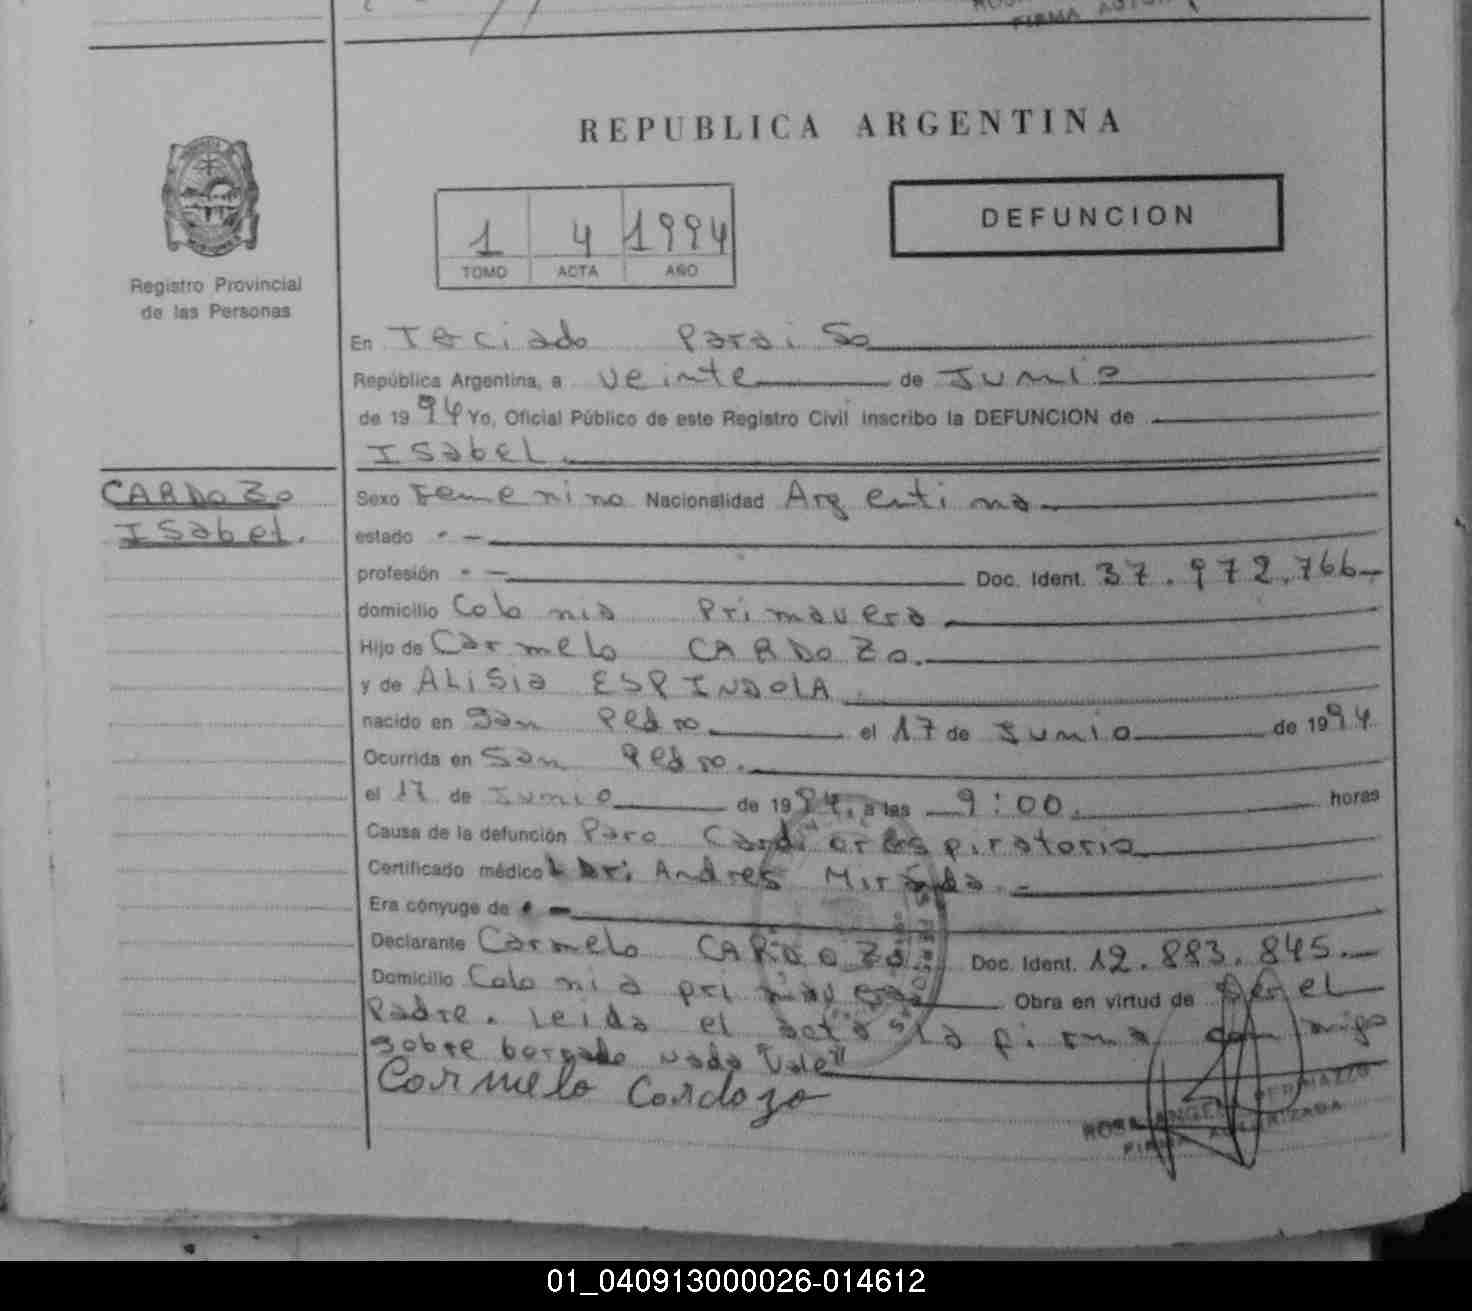 FIRMA AUTOR
REPUBLICA ARGENTINA
1 4 1994
TOMO ACTA AÑO
DEFUNCION
Registro Provincial
de las Personas
En Terciado Paraiso
República Argentina, a veinte de Junio
de 1994 Yo, Oficial Público de este Registro Civil inscribo la DEFUNCION de
Isabel
CARDOZO
Isabel.
Sexo Femenino Nacionalidad Argentina
estado - -
profesión - - Doc. Ident. 37.972.766
domicilio Colonia Primavera
Hijo de Carmelo CARDOZO.
y de ALISIA ESPINDOLA
nacido en San Pedro el 17 de Junio de 1994
Ocurrida en San Pedro.
el 17 de Junio de 1994. a las 9:00. horas
Causa de la defunción Paro Cardiorespiratorio
Certificado médico Dr: Andres Miranda. -
Era cónyuge de - -
Declarante Carmelo CARDOZO Doc. Ident. 12.883.845.
Domicilio Colonia primavera Obra en virtud de Ser el
Padre. Leida el acta la firma conmigo
sobre borrado nada "Vale"
Carmelo Cardozo
FIRMA AUTORIZADA
01_040913000026-014612